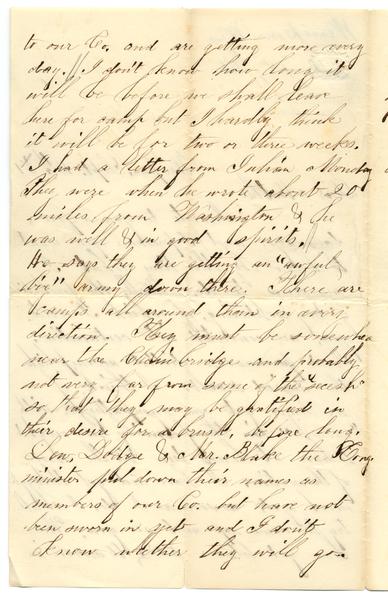 to our Co. and are getting more every
day. // I don't know how long it
will be before we shall leave
here for camp but I hardly think
it will be for two or three weeks.
I had a letter from Julian Monday
They were when he wrote about 20
miles from Washington & he
was well & in good spirits. //
He says they are getting an "awful
big" army down there. There are
camps all around them in every
direction. They must be somewhere
near the Chain bridge and probably
not very far from some of the "secesh"
so that they may be gratified in
their desire for a brush, before long.
Dodge & Mr. Blake the Cong.
minister put down their names as
members of our Co. but have not
been sworn in yet and I don't
know whether they will go.